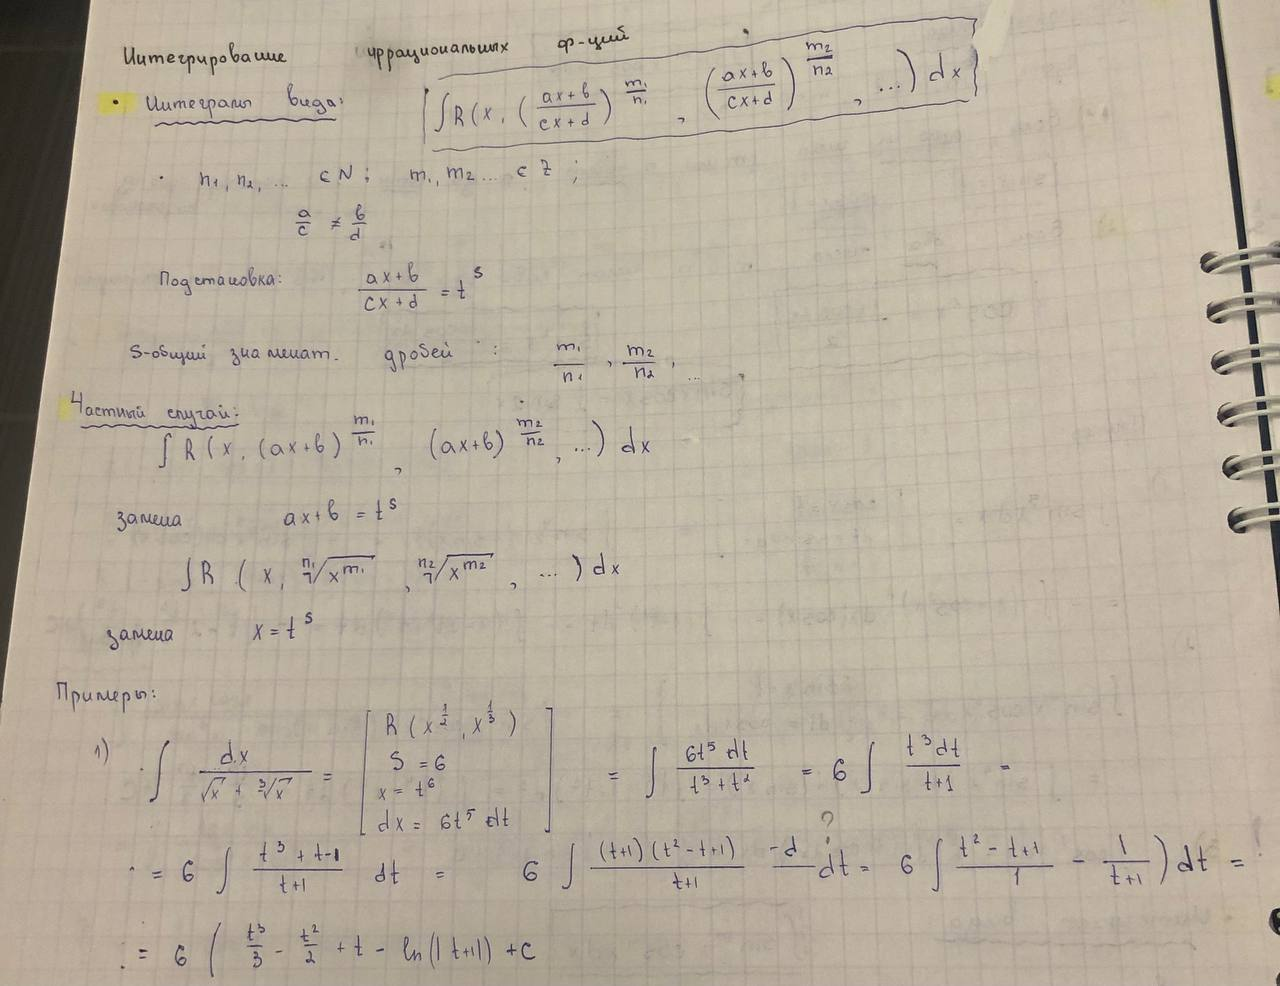 Интегрирование иррациональных ф-ций
• Интегралы вида: ∫R(x, ((ax+b)/(cx+d))^(m₁/n₁), ((ax+b)/(cx+d))^(m₂/n₂), ...) dx
· n₁, n₂, ... ∈ N; m₁, m₂ ... ∈ Z;
a/c ≠ b/d
Подстановка: (ax+b)/(cx+d) = t^s
S-общий знаменат. дробей : m₁/n₁, m₂/n₂, ...
Частный случай:
∫R(x, (ax+b)^(m₁/n₁), (ax+b)^(m₂/n₂), ...) dx
замена ax+b = t^s
∫R (x, ⁿ¹√(x^m₁), ⁿ²√(x^m₂), ...) dx
замена x = t^s
Примеры:
1) ∫ dx/(√x + ∛x) = [R(x^(1/2), x^(1/3)) S = 6 x = t⁶ dx = 6t⁵ dt] = ∫ 6t⁵ dt/(t³+t²) = 6 ∫ t³dt/(t+1) =
= 6 ∫ (t³+t-1)/(t+1) dt = 6 ∫ (t+1)(t²-t+1)/(t+1) -d/ dt = 6 ∫ (t²-t+1)/1 - 1/(t+1)) dt =
?
= 6 ( t³/3 - t²/2 + t - ln(|t+1|) + C